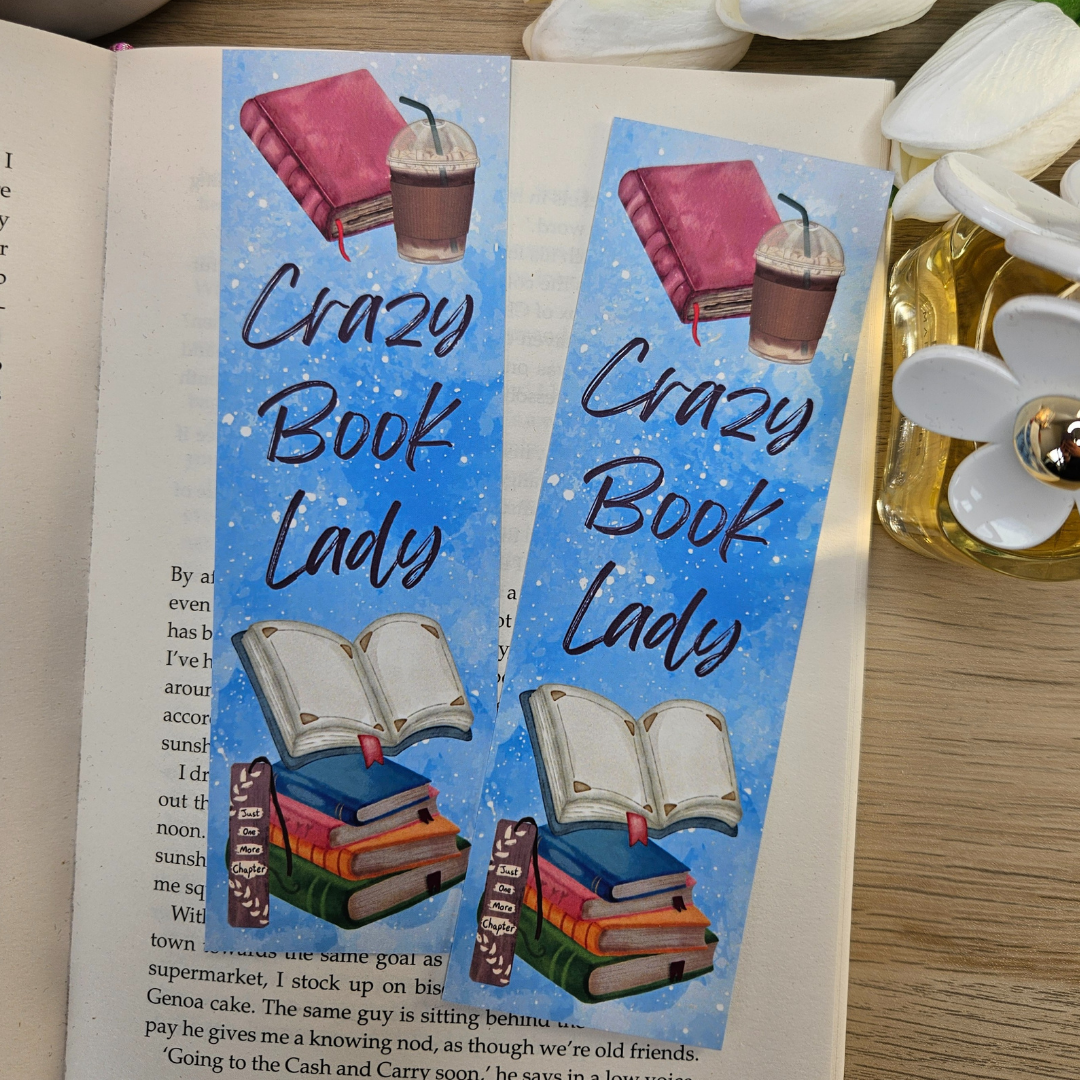 Crazy
Book
Lady
Just
One
More
Chapter
Crazy
Book
Lady
Just
One
More
Chapter
I
By
even
has
a
I've
I
out
noon.
me
With
town towards the same goal as
supermarket, I stock up on
Genoa cake. The same guy is sitting behind the
pay he gives me a knowing nod, as though we're old friends.
'Going to the Cash and Carry soon,' he says in a low voice